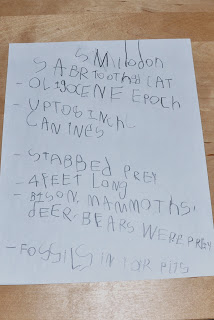 SMilodon
SABRTOOTHED CAT
- OLIGOCENE EPOCH
- UPTO 8 INCH
CANINES
- STABBED PREY
- 4 FEET LONG
- BISON, MAMMOTHS,
dEER, BEARS WERE PREY
- FOSSILS IN TAR PITS